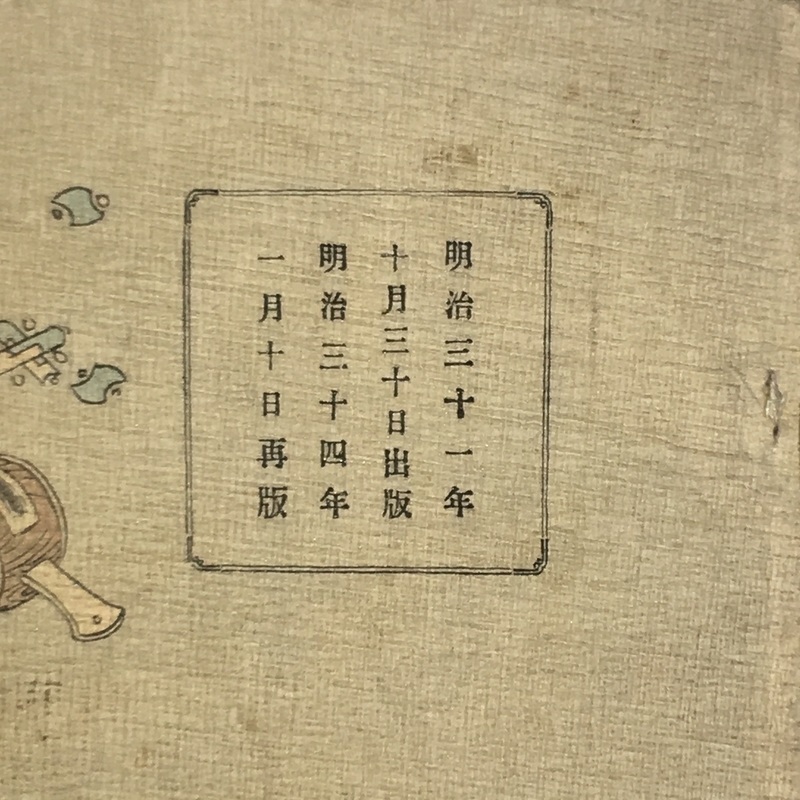 明治三十一年
十月三十日出版
明治三十四年
一月十日再版